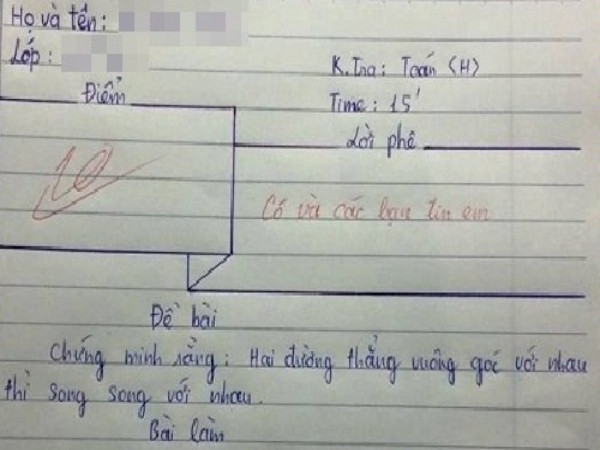 Họ và tên:
Lớp:
K.Tra: Toán (H)
Điểm
Time: 15'
Lời phê
10
Cô và các bạn tin em
Đề bài
Chứng minh rằng: Hai đường thẳng vuông góc với nhau
thì song song với nhau.
Bài làm